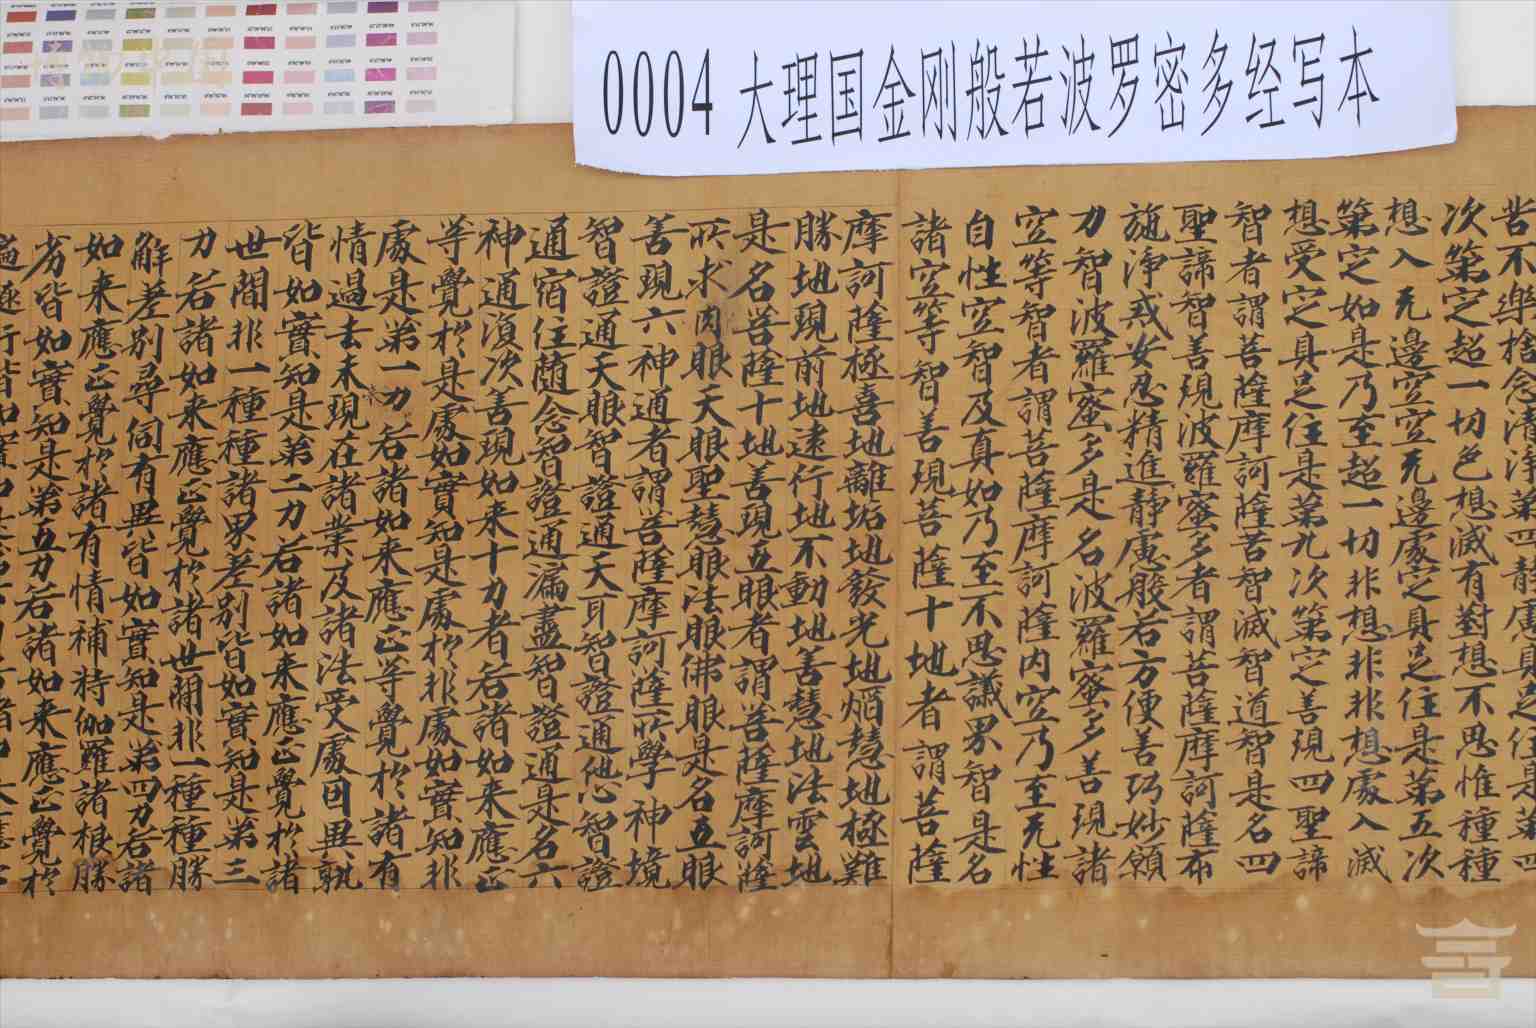 0004 大理国金刚般若波罗密多经写本
苦不樂捨念清淨入第四靜慮具足住是第四
次第定超一切色想滅有對想不思惟種種
想入无邊空空无邊處定具足住是第五次
第定如是乃至超一切非想非非想處入滅
想受定具足住是第九次第定善現四聖諦
智者謂菩薩摩訶薩苦智滅智道智是名四
聖諦智善現波羅蜜多者謂菩薩摩訶薩布
施淨戒安忍精進靜慮般若方便善巧妙願
力智波羅蜜多是名波羅蜜多善現諸
空等智者謂菩薩摩訶薩内空乃至无性
自性空智及真如乃至不思議界智是名
諸空等智善現菩薩十地者謂菩薩
摩訶薩極喜地離垢地發光地焰慧地極難
勝地現前地遠行地不動地善慧地法雲地
是名菩薩十地善現五眼者謂菩薩摩訶薩
所求肉眼天眼聖慧眼法眼佛眼是名五眼
善現六神通者謂菩薩摩訶薩所學神境
智證通天眼智證通天耳智證通他心智證
通宿住随念智證通漏盡智證通是名六
神通湏次善現如来十力者若諸如来應正
等覺於是處如實知是處於非處如實知非
處是第一力若諸如来應正等覺於諸有
情過去未現在諸業及諸法受處因異熟
皆如實知是第二力若諸如来應正覺於諸
世間非一種種諸界差别皆如實知是第三
力若諸如来應正覺於諸世間非一種種勝
解差别尋伺有異皆如實知是第四力若諸
如来應正覺於諸有情補特伽羅諸根勝
劣皆如實知是第五力若諸如来應正覺於
遍趣行皆如實知